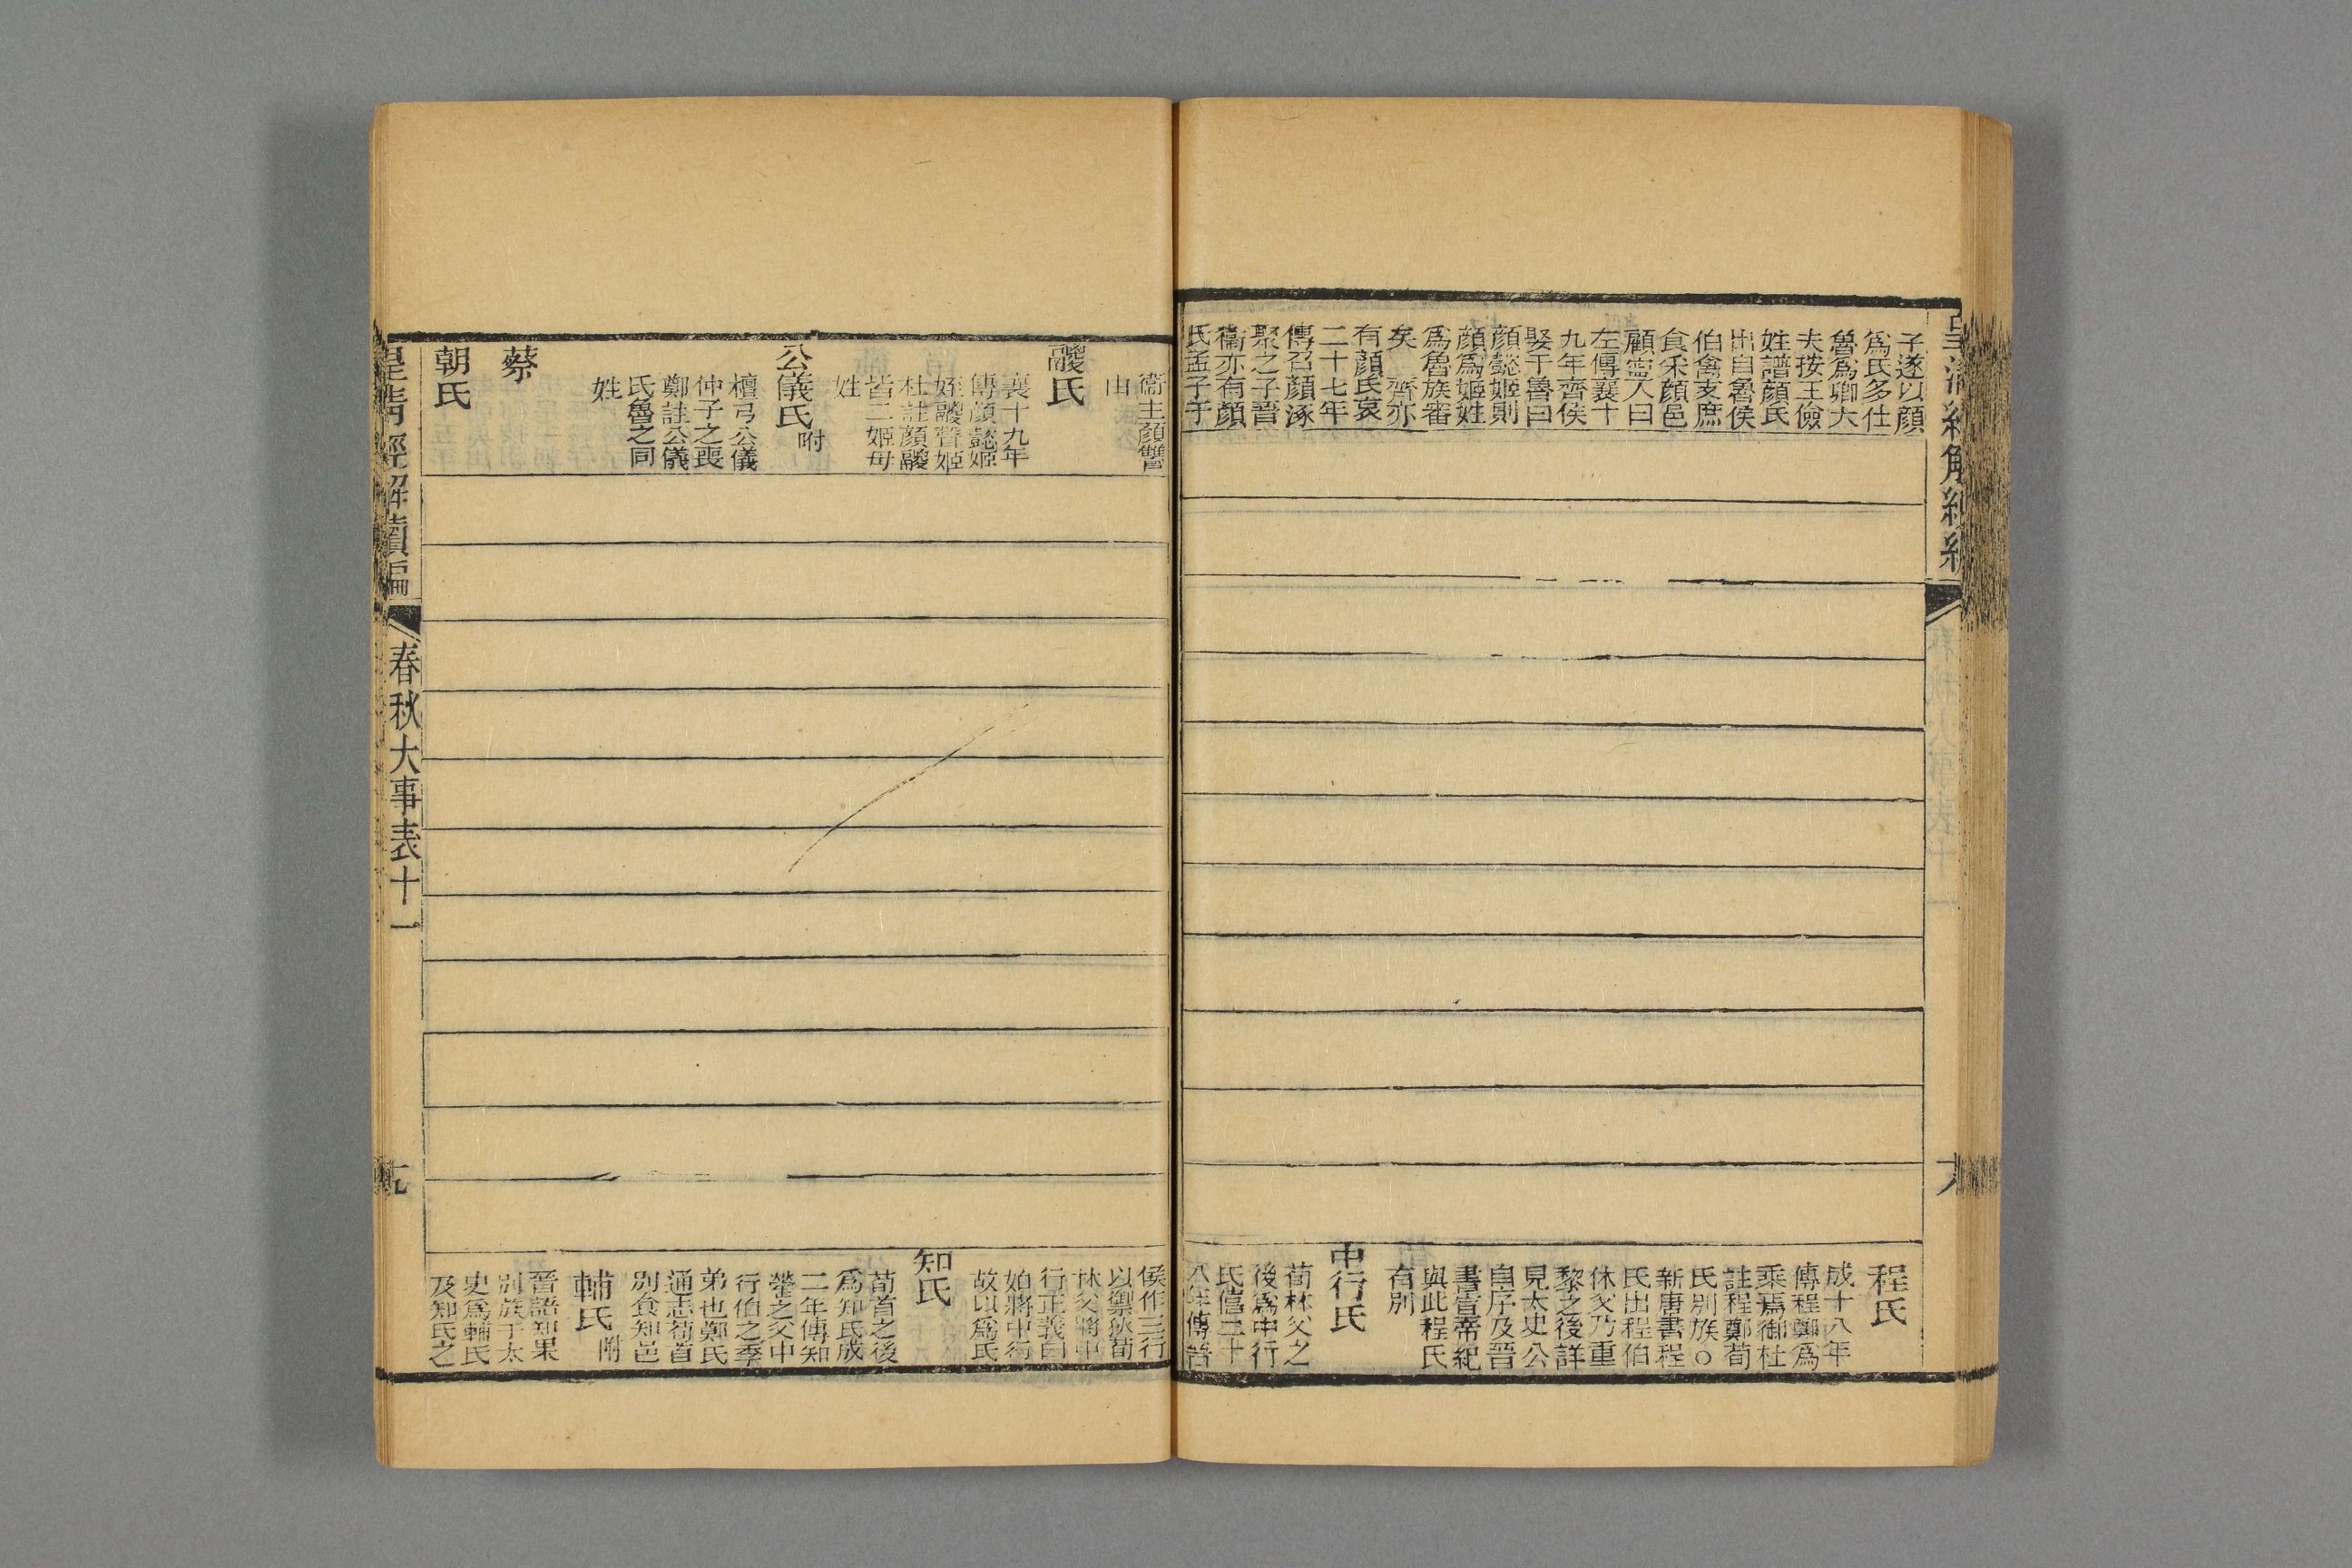 子遂以顔
爲氏多仕
魯爲卿大
夫按王儉
姓譜顔氏
出自魯侯
伯禽支庶
食采顔邑
顧寧人曰
左傳襄十
九年齊侯
娶于魯曰
顔懿姬則
顔爲姬姓
爲魯族審
矣 齊亦
有顔氏哀
二十七年
傳召顔涿
聚之子晉
衞亦有顔
氏孟子于
程氏
成十八年
傳程鄭爲
乘馬御杜
註程鄭荀
氏別族○
新唐書程
氏出程伯
休父乃重
黎之後詳
見太史公
自序及晉
書宣帝紀
與此程氏
有別
中行氏
荀林父之
後爲中行
氏僖二十
八年傳晉
衞主顔讐
由
鬷氏
襄十九年
傳顔懿姬
姪鬷聲姬
杜註顔鬷
皆二姬母
姓
公儀氏附
檀弓公儀
仲子之喪
鄭註公儀
氏魯之同
姓
蔡
朝氏
侯作三行
以禦狄荀
林父將中
行正義曰
始將中行
故以爲氏
知氏
荀首之後
爲知氏成
二年傳知
罃之父中
行伯之季
弟也鄭氏
通志荀首
別食知邑
輔氏附
晉語知果
別族于太
史爲輔氏
及知氏之
皇清經解續編
春秋大事表十一